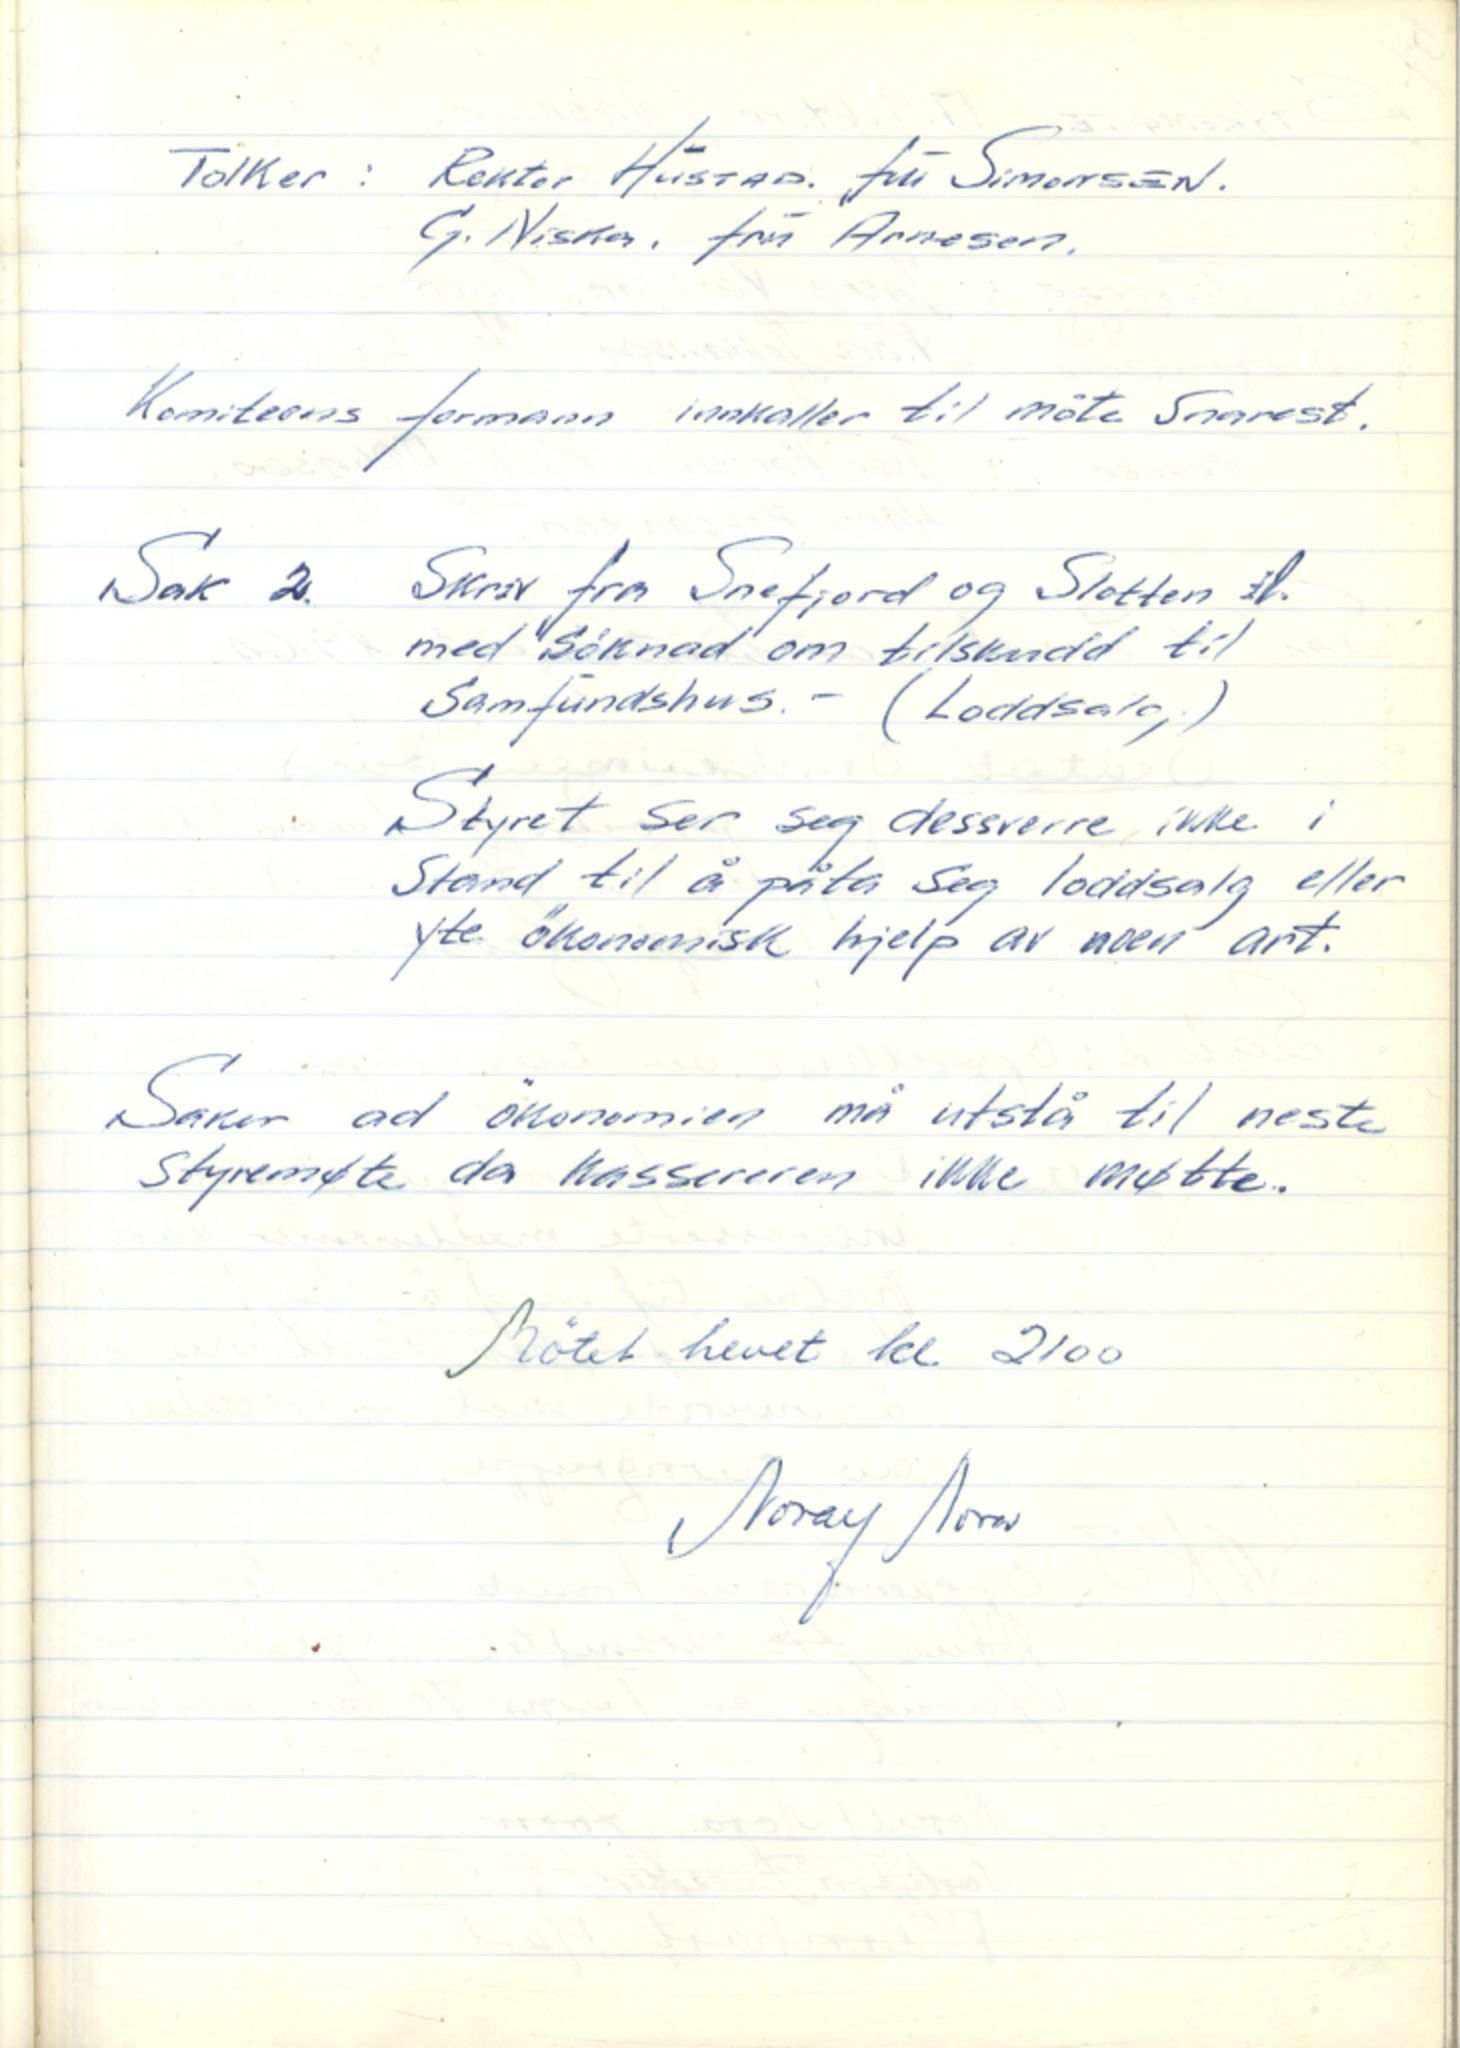 Tolker : Rektor HÜSTAD. frü SIMONSEN.
G. Niska. frü Arnesen.
Komiteens formann innkaller til möte snarest.
Sak 2. Skriv fra Snefjord og Slotten il.
med söknad om tilskudd til
Samfündshus. - (Loddsalg.)
Styret ser seg dessverre ikke i
stand til å påta seg loddsalg eller
yte ökonomisk hjelp av noen art.
Saker ad ökonomien må utstå til neste
styremøte da kassereren ikke møtte.
Mötet hevet kl. 2100